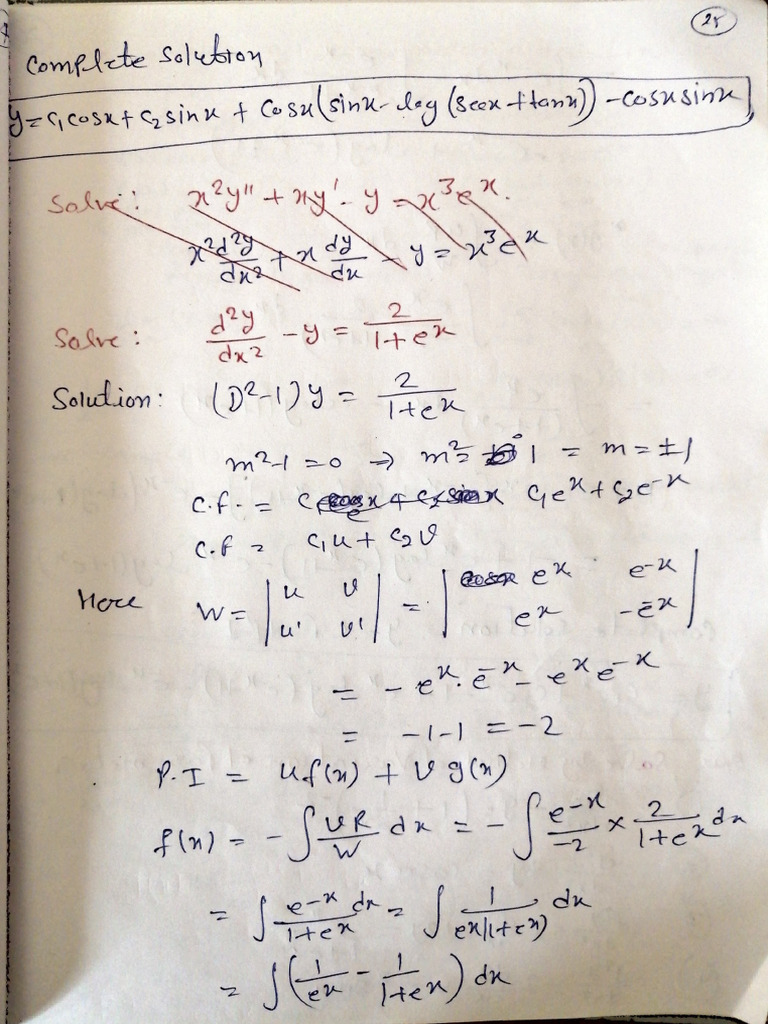 25
Complete Solution
y = c₁cosx + c₂sinx + cosx(sinx - log(secx + tanx)) - cosx sinx
Solve: x²y'' + xy' - y = x³eˣ.
x² d²y/dx² + x dy/dx - y = x³eˣ
Solve: d²y/dx² - y = 2/(1+eˣ)
Solution: (D²-1)y = 2/(1+eˣ)
m²-1 = 0 ⇒ m² = 1 = m = ±1
C.f. = c₁eˣ + c₂e⁻ˣ
C.f = c₁u + c₂v
Here W = |u v; u' v'| = |eˣ e⁻ˣ; eˣ -e⁻ˣ|
= -eˣ·e⁻ˣ - eˣe⁻ˣ
= -1-1 = -2
P.I = uf(x) + vg(x)
f(x) = -∫ vR/W dx = -∫ e⁻ˣ/-2 × 2/(1+eˣ) dx
= ∫ e⁻ˣ/(1+eˣ) dx = ∫ 1/(eˣ(1+eˣ)) dx
= ∫ (1/eˣ - 1/(1+eˣ)) dx